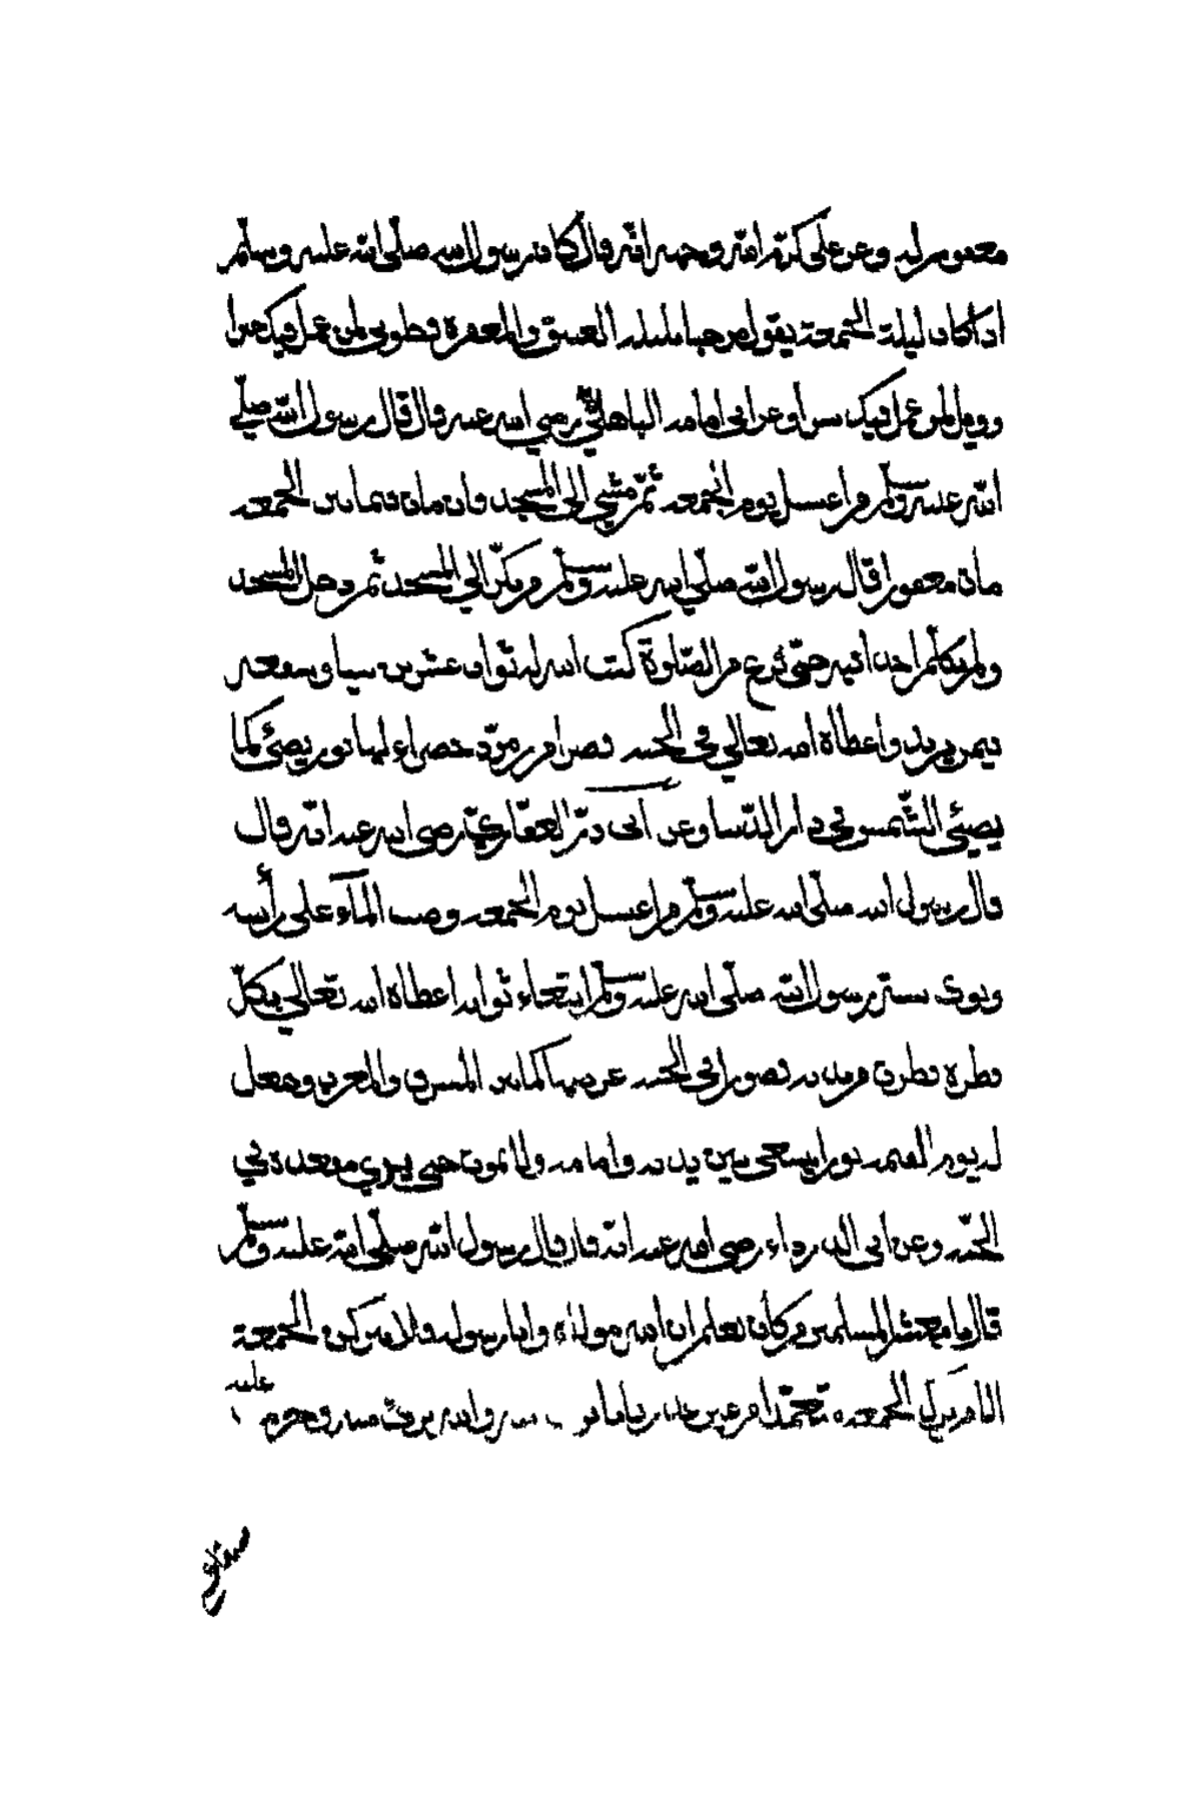 مغفور له وعن علي كرم الله وجهه انه قال كان رسول الله صلى الله عليه وسلم
اذا كان ليلة الجمعة يقول مرحبا بليلة العتق والمغفرة وطوبى لمن عمل فيك خيرا
وويل لمن عمل فيك سوا وعن ابى امامه الباهلي رضي الله عنه قال قال رسول الله صلي
الله عليه وسلم من اغتسل يوم الجمعه ثم مشي الى المسجد فان مات فيما بين الجمعه
مات مغفورا قال رسول الله صلي الله عليه وسلم من بكر الي المسجد ثم دخل المسجد
ولم يكلم احدا فيه حتى فرغ من الصلوة كتب الله له ثواب عشرين
واعطاه الله تعالي في الجنه قصرا من زمرد خضراء لها نور يضئ كما
يضئ الشمس في دار الدنيا وعن ابى ذر الغفاري رضى الله عنه انه قال
قال رسول الله صلى الله عليه وسلم من اغتسل يوم الجمعه وصب المآء على رأسه
ونوى سنة رسول الله صلى الله عليه وسلم ابتغاء ثوابه اعطاه الله تعالي بكل
قطرة قطرت من بدنه قصورا في الجنه عرضها كما بين المشرق والمغرب وجعل
له يوم القيمه نورا يسعى بين يديه وامامه ولا يموت حتى يري مقعده في
الجنه وعن ابى الدرداء رضى الله عنه انه قال قال رسول الله صلى الله عليه وسلم
قال يا معشر المسلمين من كان يعلم ان الله مولاه وانا رسوله فلا يتركن الجمعة
الا من ترك الجمعه متعمدا من غير عذر والله برئ منه وحرم عليه